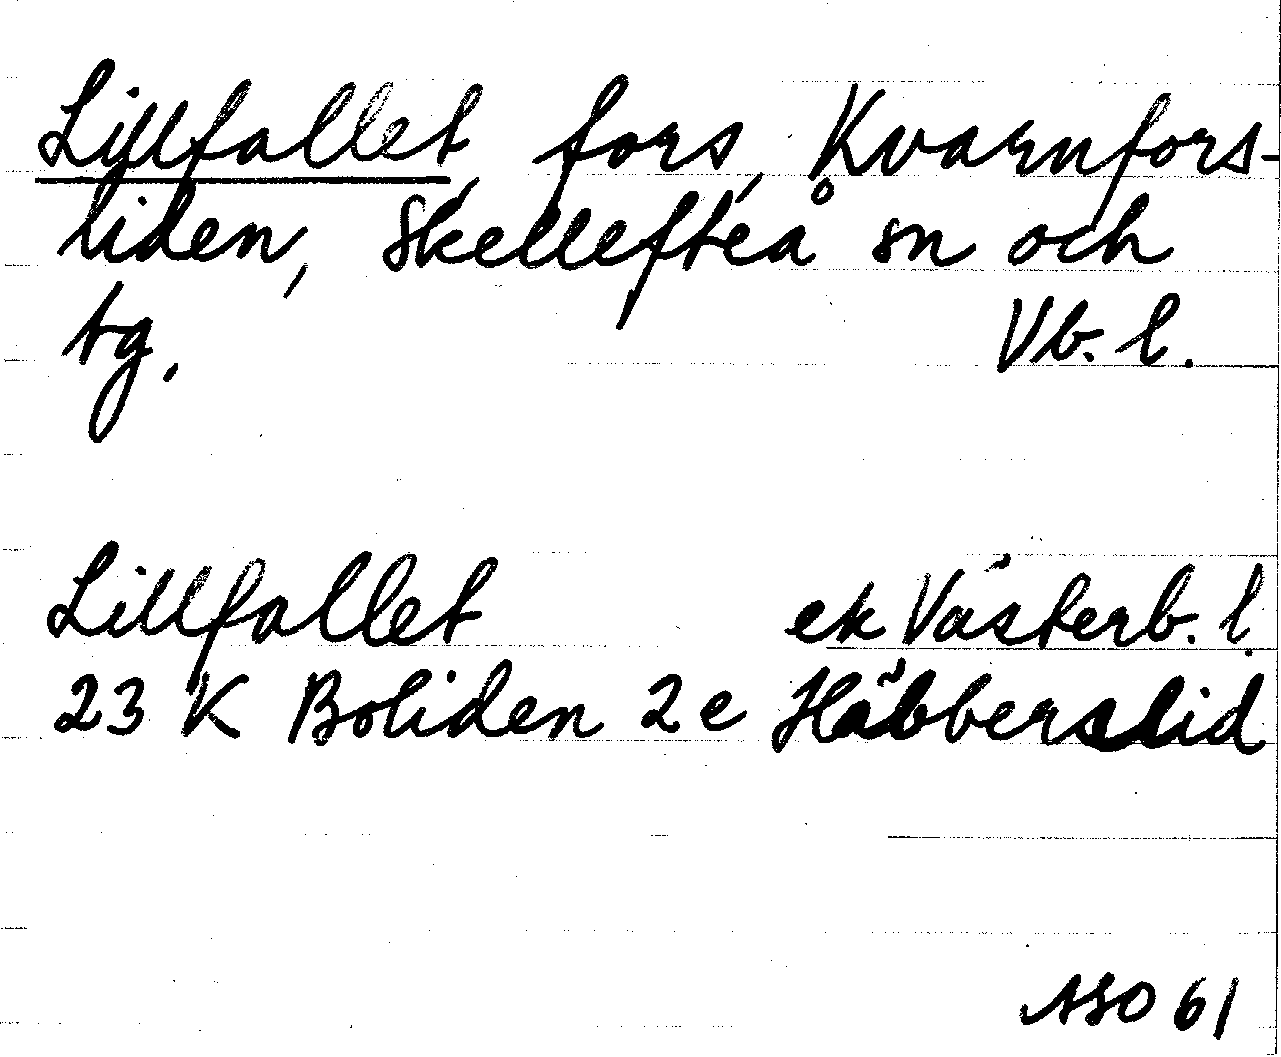 Lillfallet, fors, Kvarnfors-
liden, Skellefteå sn och
tg. Vb. l.
Lillfallet ek Västerb. l.
23 K Boliden 2e Häbberslid
ASO 61